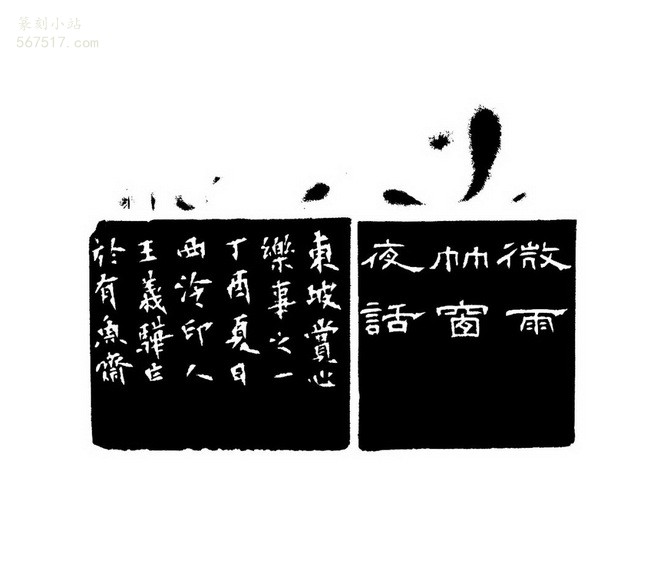 篆刻小站
567517.com
微雨
竹窗
夜話
東坡賞心
樂事之一
丁酉夏日
西泠印人
王義驊作
於有魚齋